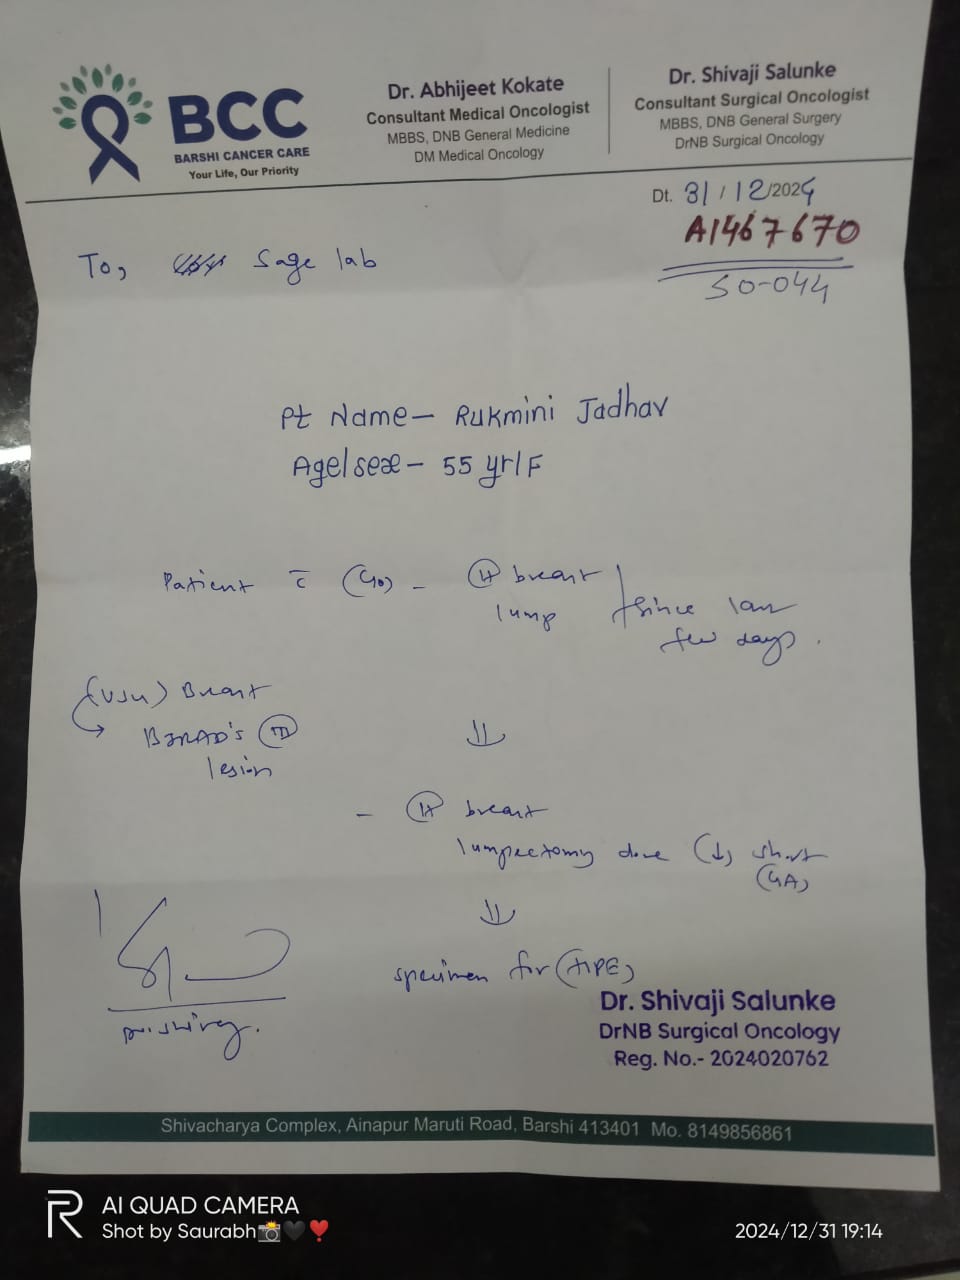 BCC
BARSHI CANCER CARE
Your Life, Our Priority
Dr. Abhijeet Kokate
Consultant Medical Oncologist
MBBS, DNB General Medicine
DM Medical Oncology
Dr. Shivaji Salunke
Consultant Surgical Oncologist
MBBS, DNB General Surgery
DrNB Surgical Oncology
Dt. 31/12/2024
A1467670
SO-044
To, Sage lab
Pt Name- Rukmini Jadhav
Age/sex- 55 yr/F
Patient c̄ (c/o) - breast
lump
since last
few days.
(USG) Breast
BIRAD's
lesion
- breast
lumpectomy done (↓) short
(GA)
specimen for (HPE)
Dr. Shivaji Salunke
DrNB Surgical Oncology
Reg. No.- 2024020762
Shivacharya Complex, Ainapur Maruti Road, Barshi 413401 Mo. 8149856861
AI QUAD CAMERA
Shot by Saurabh📸🖤❣️
2024/12/31 19:14